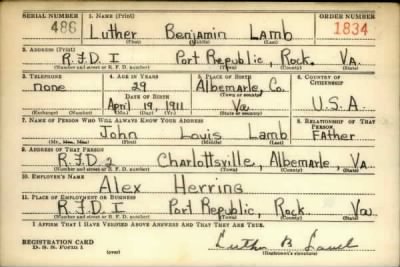 SERIAL NUMBER 1. NAME (Print) ORDER NUMBER
486 Luther Benjamin Lamb 1834
(First) (Middle) (Last)
2. ADDRESS (Print)
R.F.D. I Port Republic, Rock. Va.
(Number and street or R. F. D. number) (Town) (County) (State)
3. TELEPHONE 4. AGE IN YEARS 5. PLACE OF BIRTH 6. COUNTRY OF CITIZENSHIP
none 29 Albemarle, Co.
DATE OF BIRTH (Town or county)
April 19, 1911 Va U.S.A.
(Mo.) (Day) (Yr.) (State or country)
7. NAME OF PERSON WHO WILL ALWAYS KNOW YOUR ADDRESS 8. RELATIONSHIP OF THAT PERSON
John Louis Lamb Father
(Mr., Mrs., Miss) (First) (Middle) (Last)
9. ADDRESS OF THAT PERSON
R.F.D. 2 Charlottsville, Albemarle, Va.
(Number and street or R. F. D. number) (Town) (County) (State)
10. EMPLOYER'S NAME
Alex Herring
11. PLACE OF EMPLOYMENT OR BUSINESS
R.F.D. I Port Republic, Rock. Va.
(Number and street or R. F. D. number) (Town) (County) (State)
I AFFIRM THAT I HAVE VERIFIED ABOVE ANSWERS AND THAT THEY ARE TRUE.
REGISTRATION CARD
D. S. S. Form 1 (over) Luther B Lamb
(Registrant's signature)